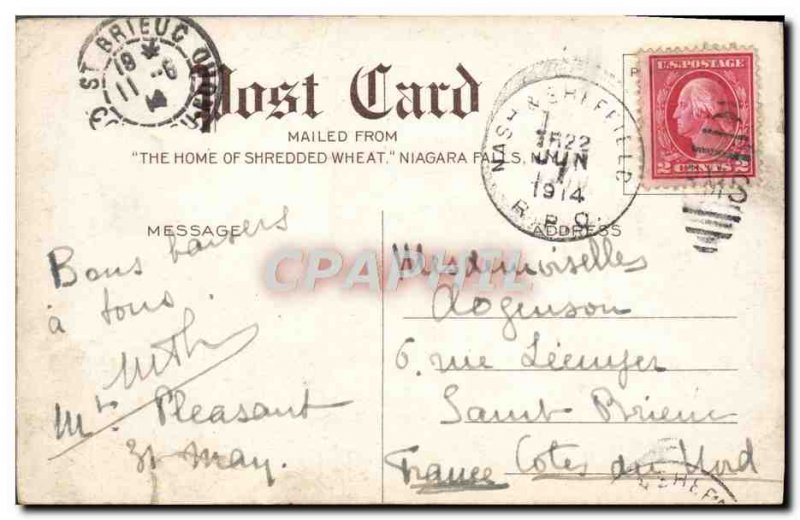 ST BRIEUC
18
11
Post Card
MAILED FROM
"THE HOME OF SHREDDED WHEAT," NIAGARA FALLS, N.
NASH & SHEFFIELD
JUN
1914
R.P.O.
U.S. POSTAGE
2 CENTS 2
RMS
MESSAGE
Bons baisers
à tous
Mt Pleasant
31 May.
ADDRESS
Mesdemoiselles
6, rue
Saint Brieuc
Côtes du Nord
France
CPAPHIL